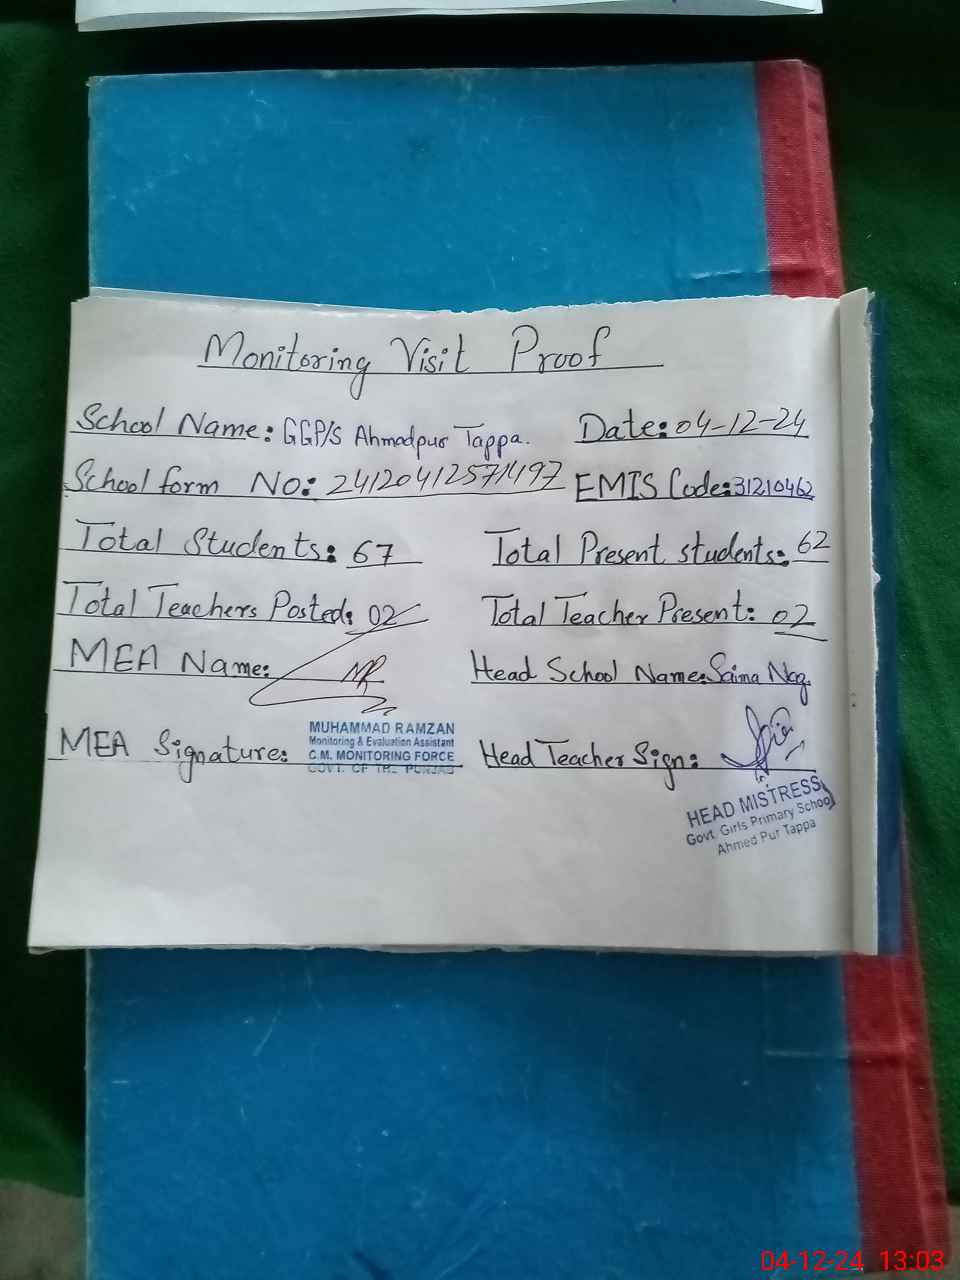 Monitoring Visit Proof
School Name: GGP/S Ahmadpur Tappa. Date: 04-12-24
School form No: 241204125771497 EMIS Code: 31210462
Total Students: 67 Total Present students: 62
Total Teachers Posted: 02 Total Teacher Present: 02
MEA Name: MR Head School Name: Saima Naz
MEA Signature: Head Teacher Sign:
MUHAMMAD RAMZAN
Monitoring & Evaluation Assistant
C.M. MONITORING FORCE
GOVT. OF THE PUNJAB
HEAD MISTRESS
Govt. Girls Primary School
Ahmed Pur Tappa
04-12-24 13:03